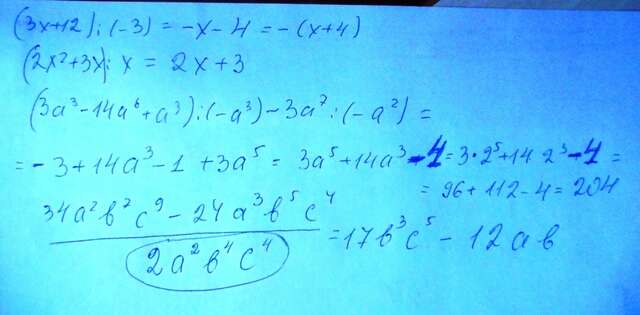 (3x+12):(-3) = -x-4 = -(x+4)
(2x²+3x):x = 2x+3
(3a³-14a⁶+a³):(-a³)-3a⁷:(-a²) =
= -3+14a³-1+3a⁵ = 3a⁵+14a³-4 = 3·2⁵+14 2³-4 =
= 96+112-4 = 204
34a²b²c⁹-24a³b⁵c⁴
2a²b⁴c⁴
=17b³c⁵-12ab